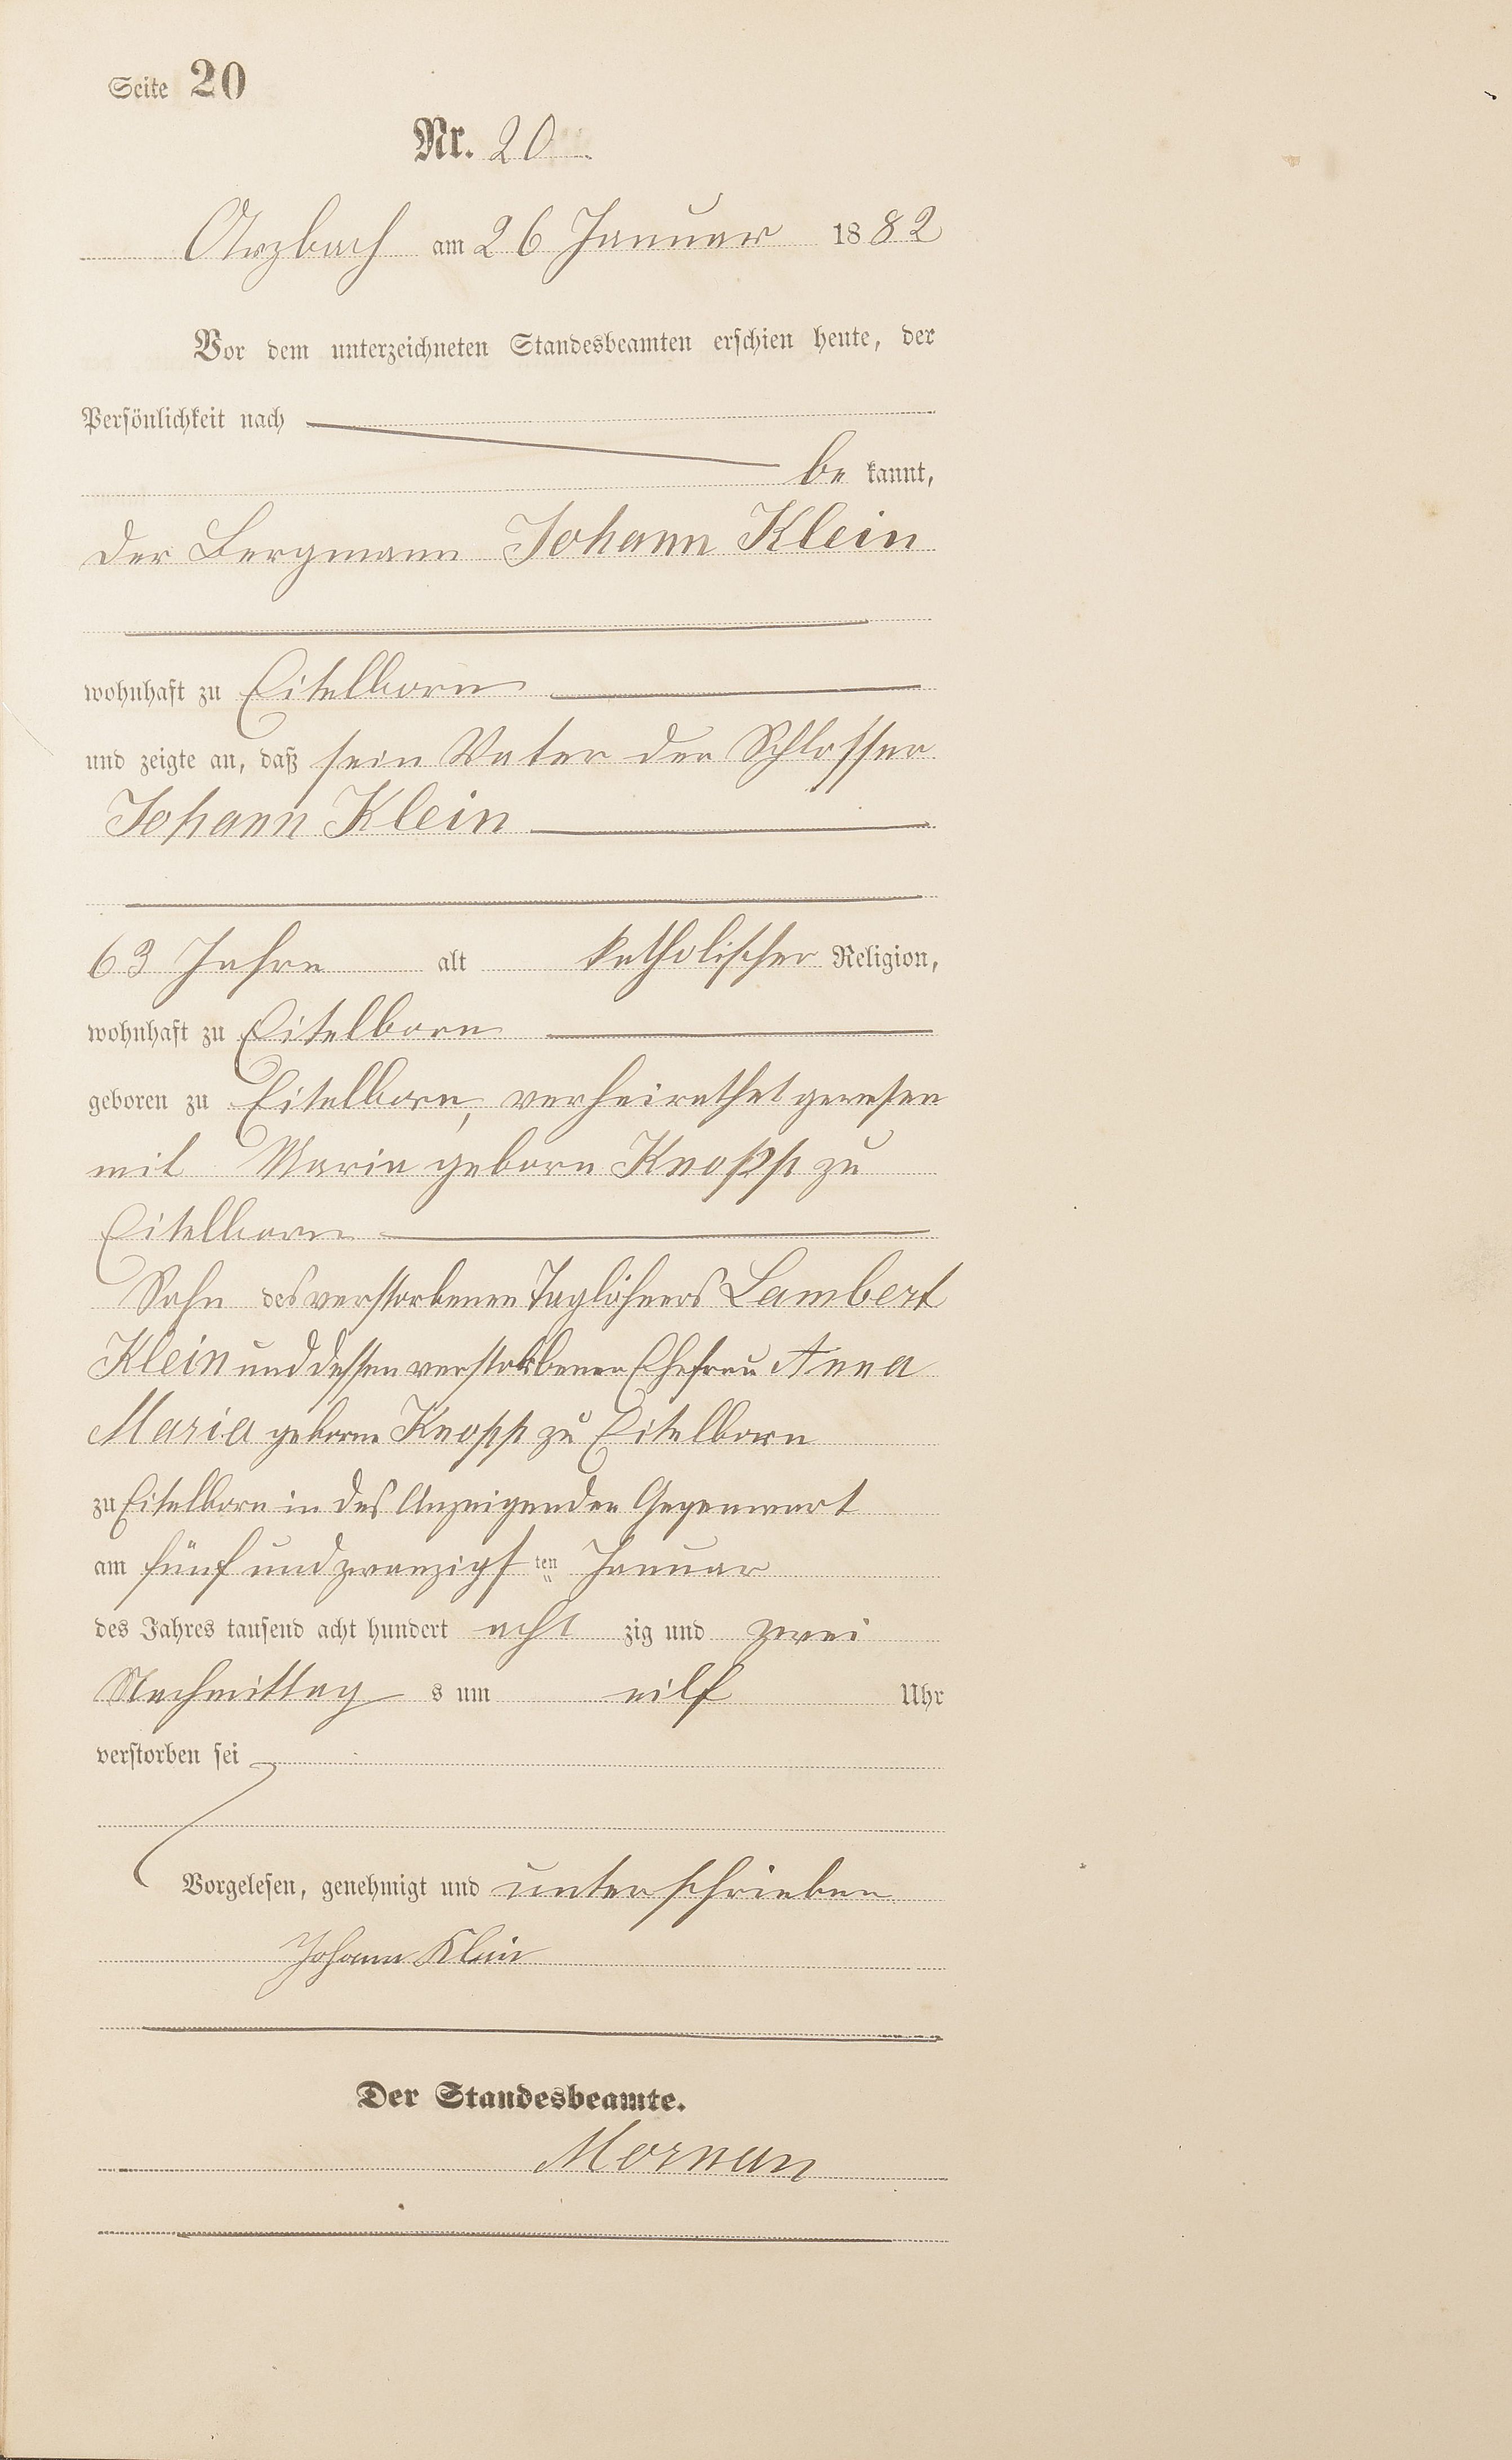 Seite 20
Nr. 20
Arzbach am 26 Januar 1882
Vor dem unterzeichneten Standesbeamten erschien heute, der
Persönlichkeit nach
be kannt,
der Bergmann Johann Klein
wohnhaft zu Eitelborn
und zeigte an, daß sein Vater der Schlosser
Johann Klein
63 Jahre alt katholischer Religion,
wohnhaft zu Eitelborn
geboren zu Eitelborn, verheirathet gewesen
mit Maria geborn Knopp zu
Eitelborn
Sohn des verstorbenen Taglöhners Lambert
Klein und dessen verstorbenen Ehefrau Anna
Maria geborne Knopp zu Eitelborn
zu Eitelborn in des Anzeigenden Gegenwart
am fünf und zwanzigs ten Januar
des Jahres tausend acht hundert acht zig und zwei
Nachmittag s um eilf Uhr
verstorben sei
Vorgelesen, genehmigt und unterschrieben
Johann Klein
Der Standesbeamte.